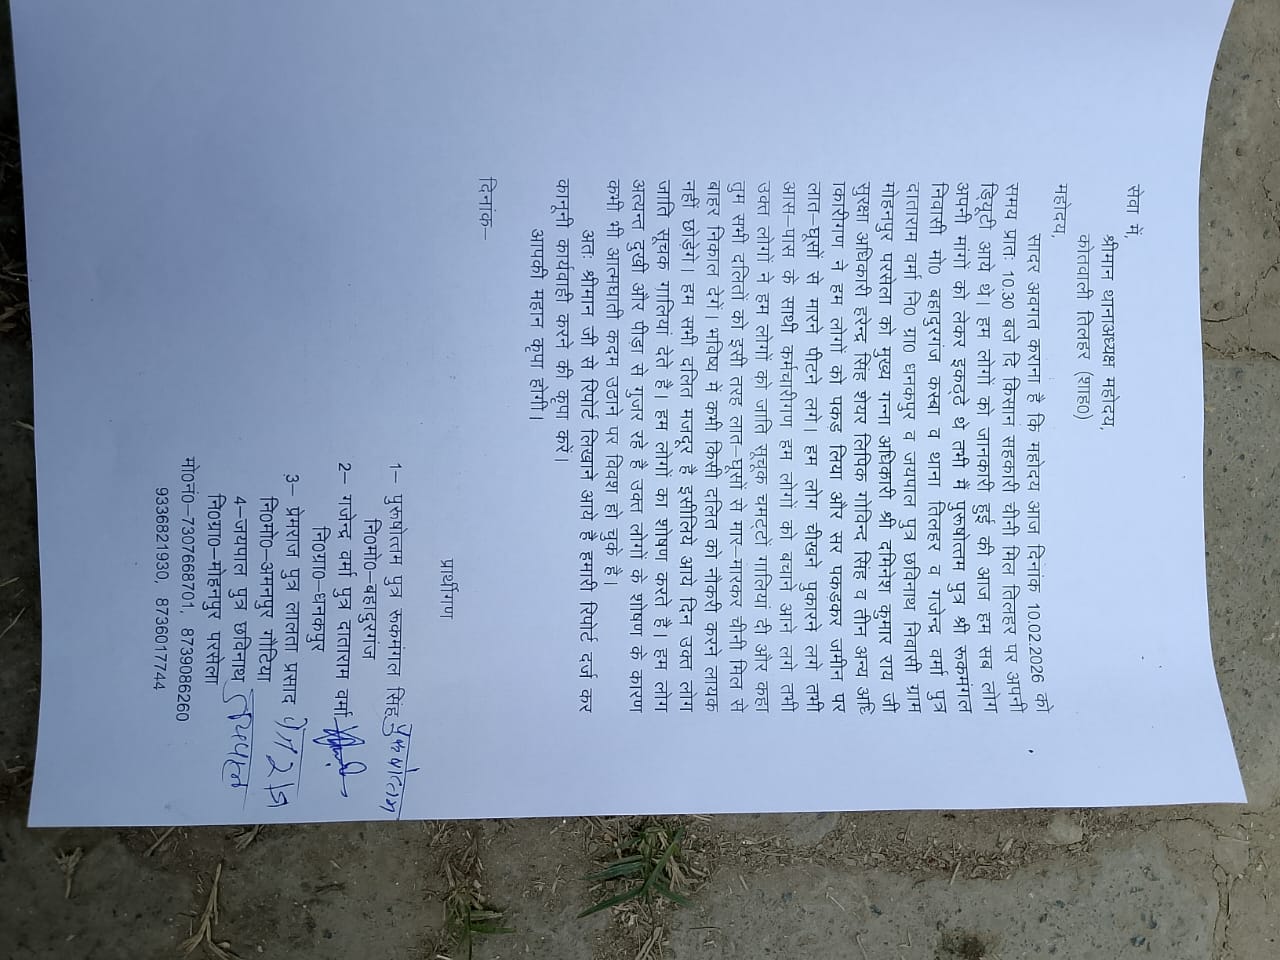 सेवा में,
श्रीमान थानाअध्यक्ष महोदय,
कोतवाली तिलहर (शाह0)
महोदय,
सादर अवगत कराना है कि महोदय आज दिनांक 10.02.2026 को
समय प्रातः 10.30 बजे दि किसान सहकारी चीनी मिल तिलहर पर अपनी
डियूटी आये थे। हम लोगो को जानकारी हुई की आज हम सब लोग
अपनी मांगों को लेकर इकट्ठे थे तभी मैं पुरूषोत्तम पुत्र श्री रूकमंगल
निवासी मो0 बहादुरगंज कस्बा व थाना तिलहर व गजेन्द्र वर्मा पुत्र
दाताराम वर्मा नि0 ग्रा0 धनकपुर व जयपाल पुत्र छविनाथ निवासी ग्राम
मोहनपुर परसेला को मुख्य गन्ना अधिकारी श्री कुमार राय जी
सुरक्षा अधिकारी हरेन्द्र सिंह शेयर लिपिक गोविन्द सिंह व तीन अन्य आदि
किरीगण ने हम लोगों को पकड लिया और सर पकडकर जमीन पर
लात-घूसों से मारने पीटने लगे। हम लोग चीखने पुकारने लगे तभी
आस-पास के साथी कर्मचारीगण हम लोगों को बचाने आने लगे तभी
उक्त लोगों ने हम लोगों को जाति सूचुक चमट्टों गालियां दी और कहा
तुम सभी दलितों को इसी तरह लात-घूसों से मार-मारकर चीनी मिल से
बाहर निकाल देगें। भविष्य में कभी किसी दलित को नौकरी करने लायक
नही छोडेगें। हम सभी दलित मजदूर है इसीलिये आये दिन उक्त लोग
जाति सूचक गालिया देते है। हम लोगों का शोषण करते है। हम लोग
अत्यन्त दुखी और पीडा से गुजर रहे है उक्त लोगों के शोषण के कारण
कभी भी आत्मघाती कदम उठाने पर विवश हो चुके है।
अतः श्रीमान जी से रिपोर्ट लिखाने आये है हमारी रिपोर्ट दर्ज कर
कानूनी कार्यवाही करने की कृपा करें।
आपकी महान कृपा होगी।
दिनांक-
प्रार्थीगण
1- पुरूषोत्तम पुत्र रूकमंगल सिंह पुरूषोत्तम
नि0मो0-बहादुरगंज
2- गजेन्द्र वर्मा पुत्र दाताराम वर्मा
नि0ग्रा0-धनकपुर
3- प्रेमराज पुत्र लालता प्रसाद प्रेमराज
नि0मो0-अमनपुर गौटिया
4-जयपाल पुत्र छविनाथ जयपाल
नि0ग्रा0-मोहनपुर परसेला
मो0नं0-7307668701, 8739086260
9336821930, 8736017744